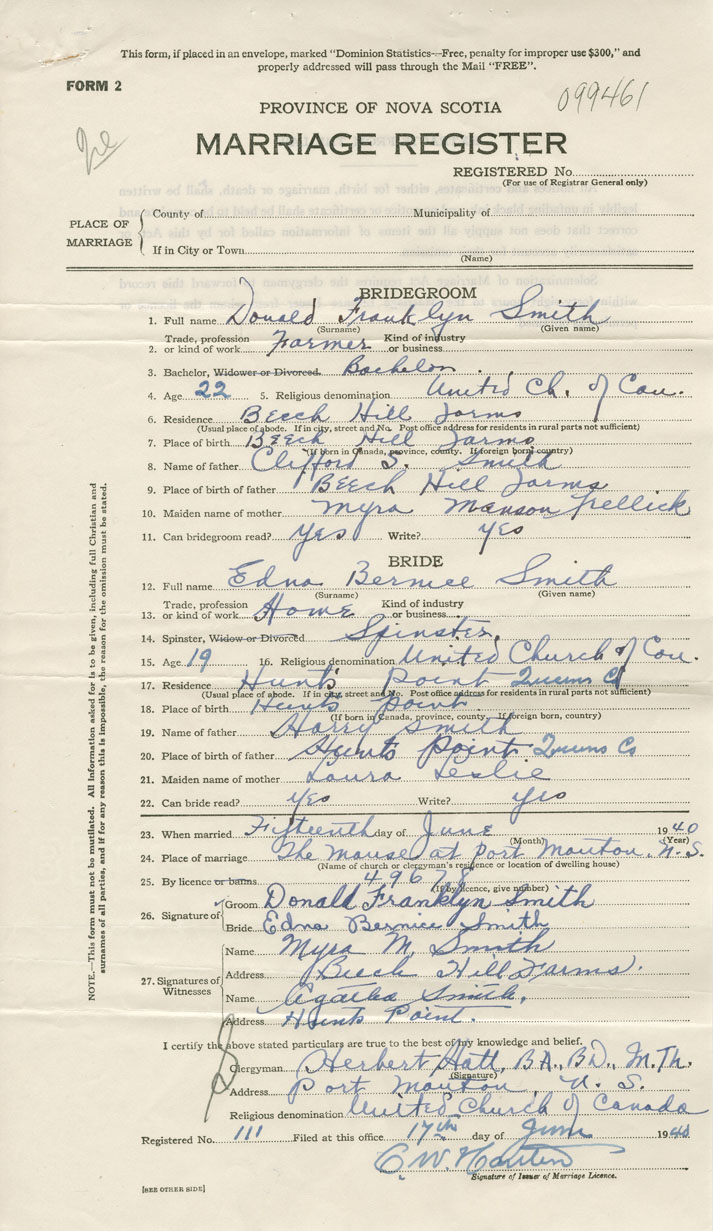 This form, if placed in an envelope, marked "Dominion Statistics—Free, penalty for improper use $300," and
properly addressed will pass through the Mail "FREE".
FORM 2
099461
PROVINCE OF NOVA SCOTIA
MARRIAGE REGISTER
REGISTERED No.
(For use of Registrar General only)
PLACE OF MARRIAGE
County of Municipality of
If in City or Town
(Name)
BRIDEGROOM
1. Full name Donald Franklyn Smith
(Surname) (Given name)
2. Trade, profession or kind of work Farmer Kind of industry or business
3. Bachelor, Widower or Divorced. Bachelor.
4. Age 22 5. Religious denomination United Ch. of Can.
6. Residence Beech Hill Farms
(Usual place of abode. If in city, street and No. Post office address for residents in rural parts not sufficient)
7. Place of birth Beech Hill Farms
(If born in Canada, province, county. If foreign born, country)
8. Name of father Clifford S. Smith
9. Place of birth of father Beech Hill Farms
10. Maiden name of mother Myra Manson
11. Can bridegroom read? Yes Write? Yes
BRIDE
12. Full name Edna Bernice Smith
(Surname) (Given name)
13. Trade, profession or kind of work Home Kind of industry or business
14. Spinster, Widow or Divorced Spinster.
15. Age 19 16. Religious denomination United Church of Can.
17. Residence Hunts Point Queens Co
(Usual place of abode. If in city, street and No. Post office address for residents in rural parts not sufficient)
18. Place of birth Hunts Point.
(If born in Canada, province, county. If foreign born, country)
19. Name of father Harry Smith
20. Place of birth of father Hunts Point Queens Co
21. Maiden name of mother Laura Leslie
22. Can bride read? Yes Write? Yes
23. When married Fifteenth day of June 1940
(Month) (Year)
24. Place of marriage The Manse at Port Mouton, N.S.
(Name of church or clergyman's residence or location of dwelling house)
25. By licence or banns 49678
(If by licence, give number)
26. Signature of
Groom Donald Franklyn Smith
Bride Edna Bernice Smith
27. Signatures of Witnesses
Name Myra M. Smith
Address Beech Hill Farms.
Name Agatha Smith.
Address Hunts Point.
I certify the above stated particulars are true to the best of my knowledge and belief.
Clergyman Herbert Hatt, B.A., B.D., M.Th.
(Signature)
Address Port Mouton, N.S.
Religious denomination United Church of Canada
Registered No. 111 Filed at this office 17th day of June 1940
C. W.
Signature of Issuer of Marriage Licence.
[SEE OTHER SIDE]
NOTE.—This form must not be mutilated. All information asked for is to be given, including full Christian and
surnames of all parties, and if for any reason this is impossible, the reason for the omission must be stated.